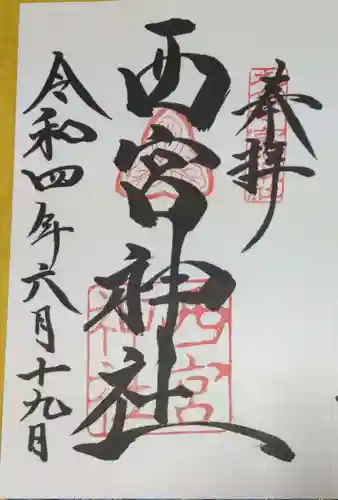 奉拝
西宮神社
令和四年六月十九日
西宮
神社